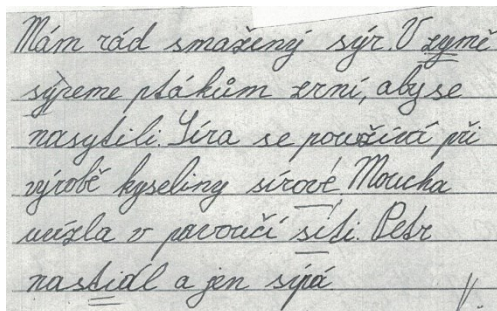 Mám rád smažený sýr. V zymě
sypeme ptákům zrní, aby se
nasytili. Síra se používá při
výrobě kyseliny sírové. Moucha
uvízla v pavoučí síti. Petr
nastidl a jen sípá